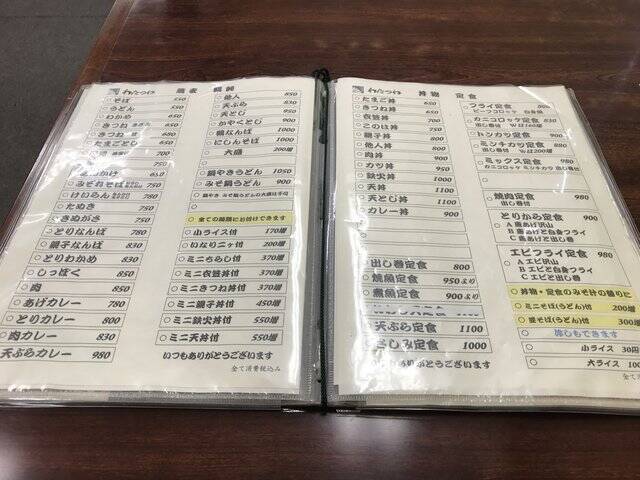 そば 550
うどん 550
わかめ 650
たまごとじ 650
みぞれそば 750
けいらん 700
たぬき 750
きぬがさ 750
とりなんば 750
親子なんば 830
とりわかめ 830
しっぽく 850
肉 850
あげカレー 780
とりカレー 800
肉カレー 830
天ぷらカレー 980
他人 850
天ぷら 830
天とじ 950
かやくとじ 900
鴨なんば 1000
にしんそば 1000
大盛 200増
鍋やきうどん 1050
みそ鍋うどん 1000
全ての麺類にお付けできます
小ライス付 170増
いなり二ヶ付 200増
ミニちらし付 370増
ミニ衣笠丼付 370増
ミニきつね丼付 370増
ミニ親子丼付 450増
ミニ鉄火丼付 550増
ミニ天丼付 550増
いつもありがとうございます
全て消費税込み
丼物 定食
たまご丼 650
きつね丼 650
衣笠丼 700
このは丼 750
親子丼 800
他人丼 800
肉丼 900
カツ丼 950
鉄火丼 1000
天丼 1000
天とじ丼 1100
カレー丼 900
出し巻定食 800
焼魚定食 950より
煮魚定食 900より
天ぷら定食 1100
さしみ定食 1100
いつもありがとうございます
フライ定食
カニコロッケ定食
トンカツ定食 900
ミンチカツ定食
ミックス定食 980
焼肉定食 900
とりから定食 900
エビフライ定食 980
A エビ沢山
B エビと白身フライ
C エビと出し巻
丼物・定食のみそ汁の替りに
ミニそば(うどん)付 200増
並そば(うどん)付 300増
冷しもできます
小ライス 30円
大ライス 100
全て消